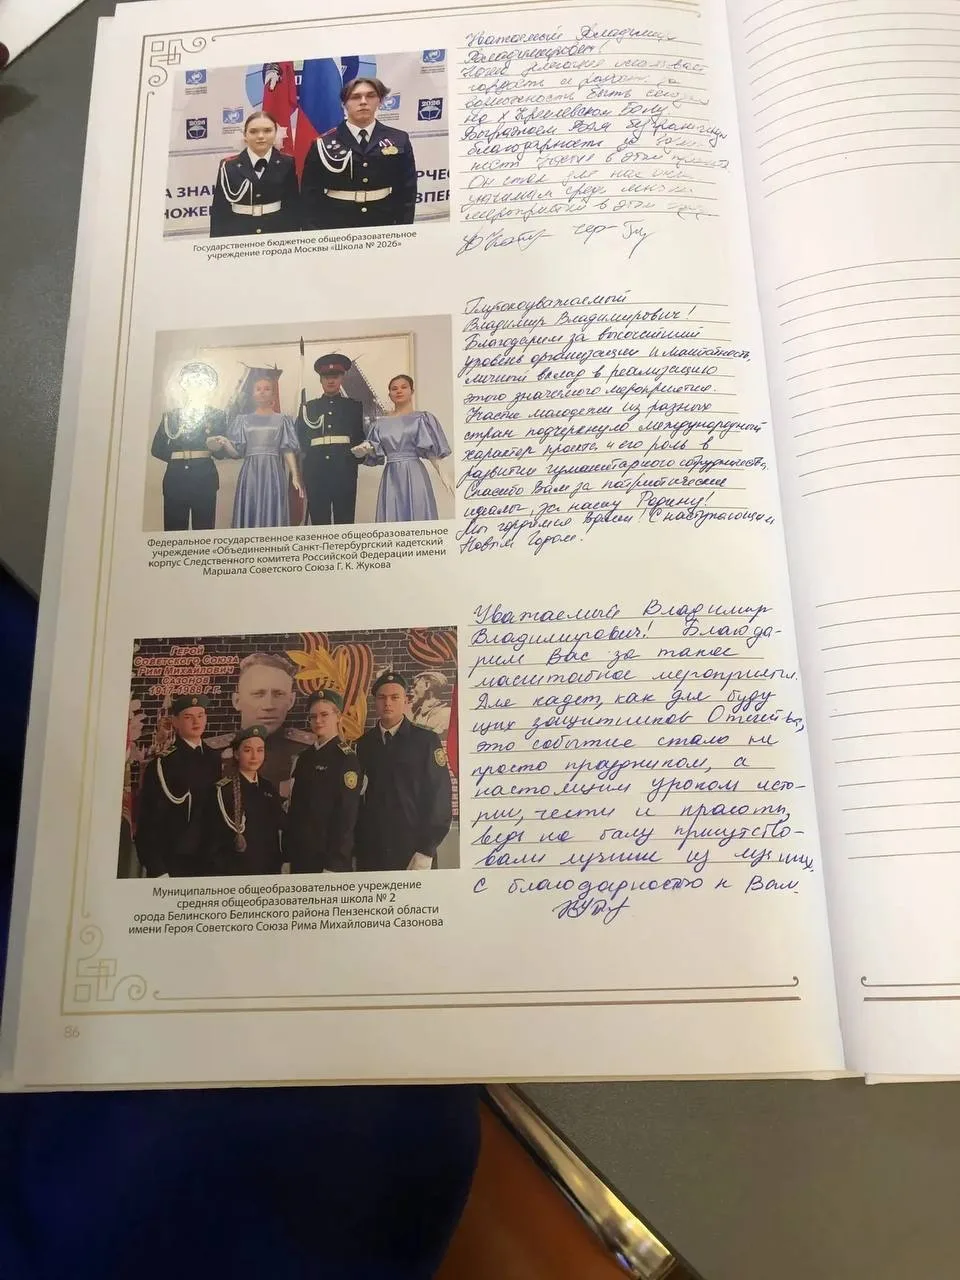 2026
2026
А ЗНА
ЧЕС
НОЖЕ
ВПЕР
Государственное бюджетное общеобразовательное
учреждение города Москвы «Школа № 2026»
Уважаемый Владимир
Владимирович!
гордость и за
возможность быть сегодня
на X Кремлевском Балу
Выражаем Вам безграничную
благодарность за
участие в этом
Он стал для нас
значимым среди многих
мероприятий в этом году
Федеральное государственное казенное общеобразовательное
учреждение «Объединенный Санкт-Петербургский кадетский
корпус Следственного комитета Российской Федерации имени
Маршала Советского Союза Г. К. Жукова
Глубокоуважаемый
Владимир Владимирович!
Благодарим за высочайший
уровень организации и масштабность,
личный вклад в реализацию
этого значимого мероприятия.
Участие молодежи из разных
стран подчеркнуло международный
характер проекта и его роль в
развитии гуманитарного сотрудничества.
Спасибо Вам за патриотические
идеалы, за нашу Родину!
Мы гордимся Вами! С наступающим
Новым Годом!
ГЕРОЙ
СОВЕТСКОГО СОЮЗА
РИМ МИХАЙЛОВИЧ
САЗОНОВ
1917-1988 г г.
Муниципальное общеобразовательное учреждение
средняя общеобразовательная школа № 2
орода Белинского Белинского района Пензенской области
имени Героя Советского Союза Рима Михайловича Сазонова
Уважаемый Владимир
Владимирович! Благода-
рим Вас за такое
масштабное мероприятие.
Для кадет, как для буду
щих защитников Отечест-ва,
это событие стало не
просто праздником, а
настоящим уроком исто-
рии, чести и красоты,
ведь на балу присутство-
вали лучшие из лучших.
С благодарностью к Вам.
86